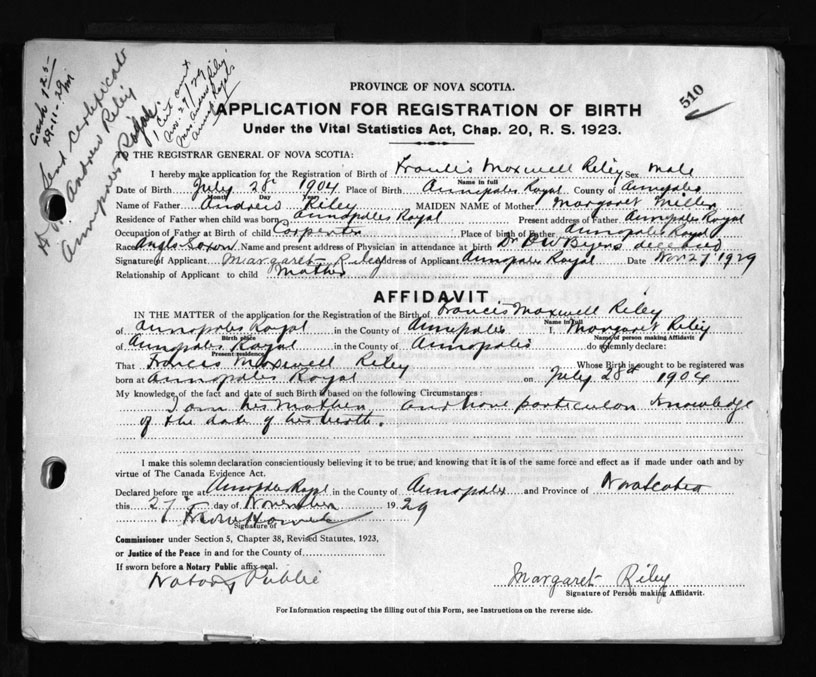 Cash 1 25
29-11-29
Send certificate
Andrew Riley
Annapolis Royal
Cert sent
Nov. 29/29
Mrs Andrew Riley
Annapolis Royal
510
PROVINCE OF NOVA SCOTIA.
APPLICATION FOR REGISTRATION OF BIRTH
Under the Vital Statistics Act, Chap. 20, R. S. 1923.
TO THE REGISTRAR GENERAL OF NOVA SCOTIA:
I hereby make application for the Registration of Birth of Francis Maxwell Riley Sex Male
Name in full
Date of Birth July 28 1904 Place of Birth Annapolis Royal County of Annapolis
Month Day Year
Name of Father Andrew Riley MAIDEN NAME of Mother Margaret Miller
Residence of Father when child was born Annapolis Royal Present address of Father Annapolis Royal
Occupation of Father at Birth of child Carpenter Place of birth of Father Annapolis Royal
Race Anglo Saxon Name and present address of Physician in attendance at birth Dr deceased
Signature of Applicant Margaret Riley Address of Applicant Annapolis Royal Date Nov 27 1929
Relationship of Applicant to child Mother
AFFIDAVIT
IN THE MATTER of the application for the Registration of the Birth of Francis Maxwell Riley
Name in Full
of Annapolis Royal in the County of Annapolis I, Margaret Riley
Birth place Name of person making Affidavit
of Annapolis Royal in the County of Annapolis do solemnly declare:
Present residence
That Francis Maxwell Riley Whose Birth is sought to be registered was
born at Annapolis Royal on July 28th 1904
My knowledge of the fact and date of such Birth is based on the following Circumstances:
I am his Mother and have particular knowledge
of the date of his birth.
I make this solemn declaration conscientiously believing it to be true, and knowing that it is of the same force and effect as if made under oath and by
virtue of The Canada Evidence Act.
Declared before me at Annapolis Royal in the County of Annapolis and Province of Nova Scotia
this 27 day of November 1929
Signature of
Commissioner under Section 5, Chapter 38, Revised Statutes, 1923,
or Justice of the Peace in and for the County of
If sworn before a Notary Public affix seal.
Notary Public
Margaret Riley
Signature of Person making Affidavit.
For Information respecting the filling out of this Form, see Instructions on the reverse side.